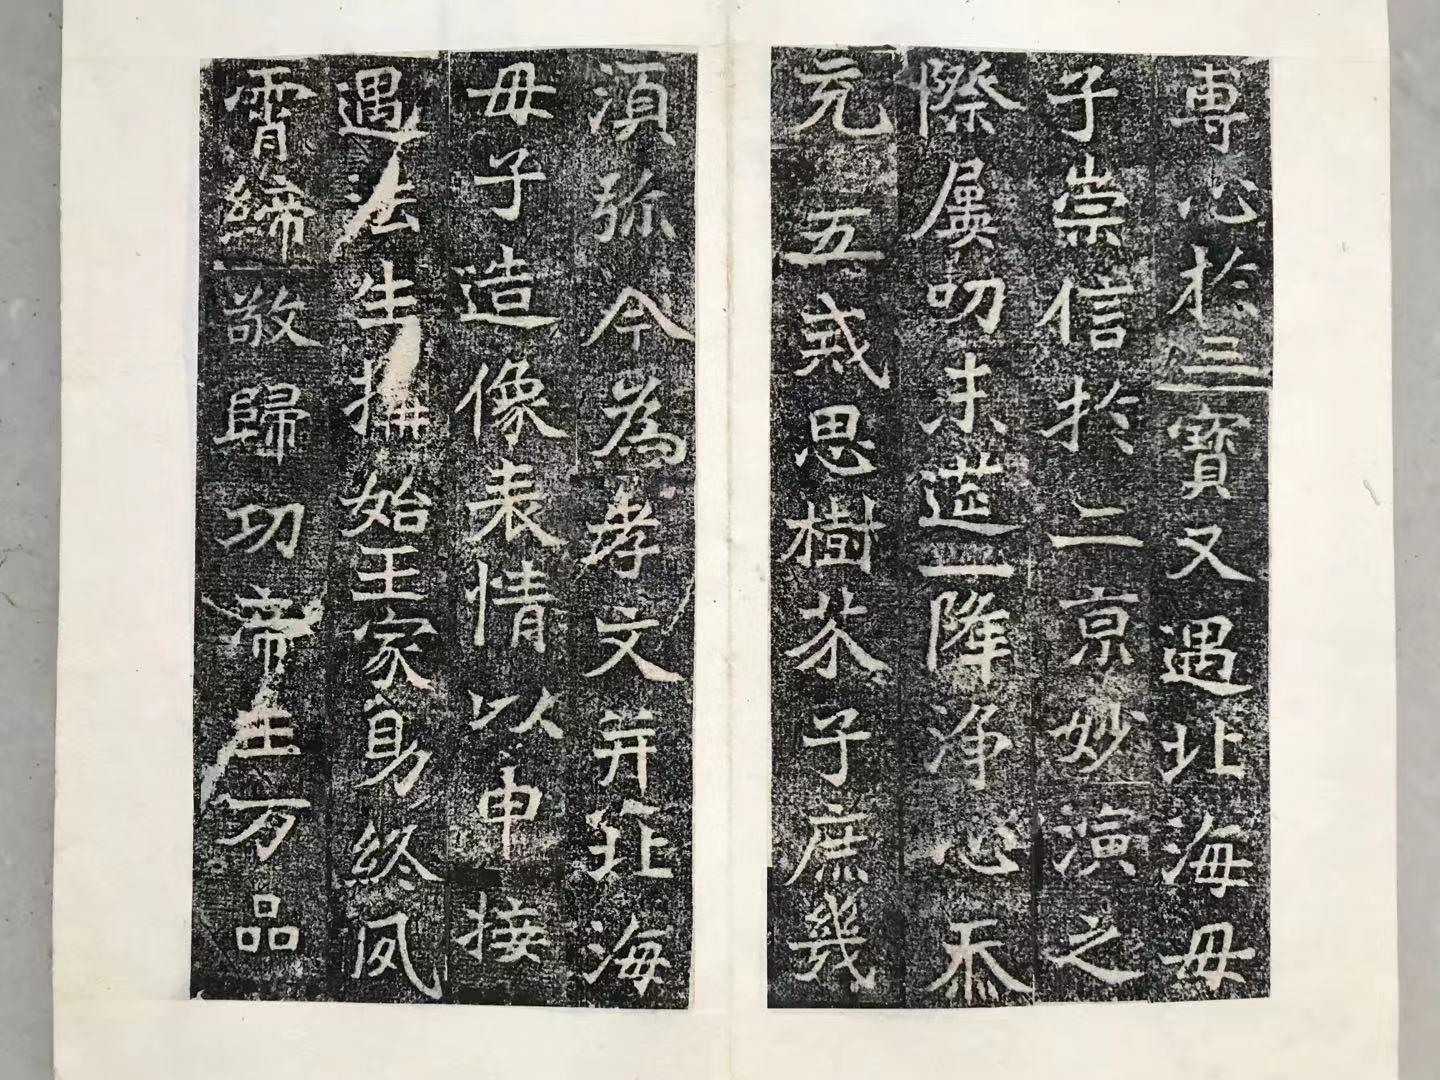 專心於三寶又遇北海母
子崇信於二京妙演之
際屢叨末筵一降淨心忝
充五戒思樹芥子庶幾
須弥今為孝文并北海
母子造像表情以申接
遇法生搆始王家助終夙
霄締敬歸功帝王万品